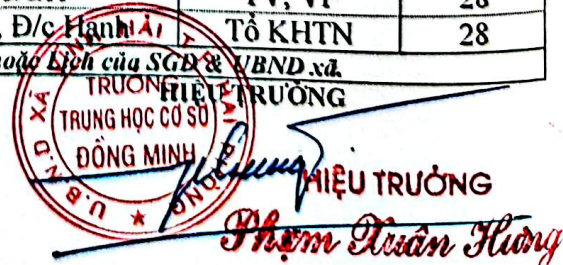 28
Đ/c Hạnh Tổ KHTN 28
hoặc Lịch của SGD & UBND xã.
HIỆU TRƯỞNG
TRƯỜNG
TRUNG HỌC CƠ SỞ
ĐỒNG MINH
U.B.N.D XÃ
HIỆU TRƯỞNG
Phạm Xuân Hưng